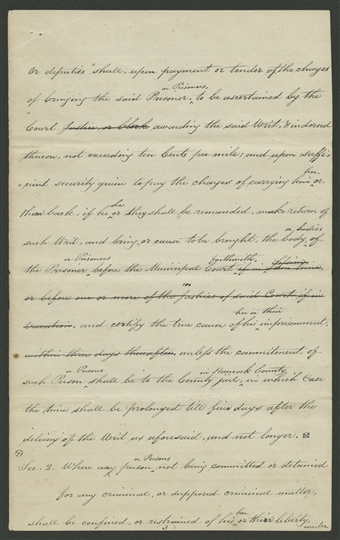 or deputies shall, upon payment or tender of the charges
or Prisoners,
of bringing the said Prisoner, to be ascertained by the
Court Justice or Clerk awarding the said Writ, & indorsed
thereon, not exceeding ten Cents per mile; and upon suffi-
cient security given to pay the charges of carrying him or
her
them back, if he or they shall be remanded, make return of
she
such Writ, and bring, or cause to be brought, the body of
or bodies
the Prisoner before the Municipal Court
or Prisoners forthwith,
or before one or more of the Justices of said Court if in
vacation, and certify the true cause of his imprisonment,
her or their
within three days thereafter, unless the commitment of
such Prison shall be to the County jail, in which Case
or Persons in Hancock County,
the time shall be prolonged till five days after the
delivery of the Writ as aforesaid, and not longer. &
Sec. 2. Where any person not being committed or detained
or Persons
for any criminal, or supposed criminal matter,
shall be confined, or restrained of his or their liberty,
her
under